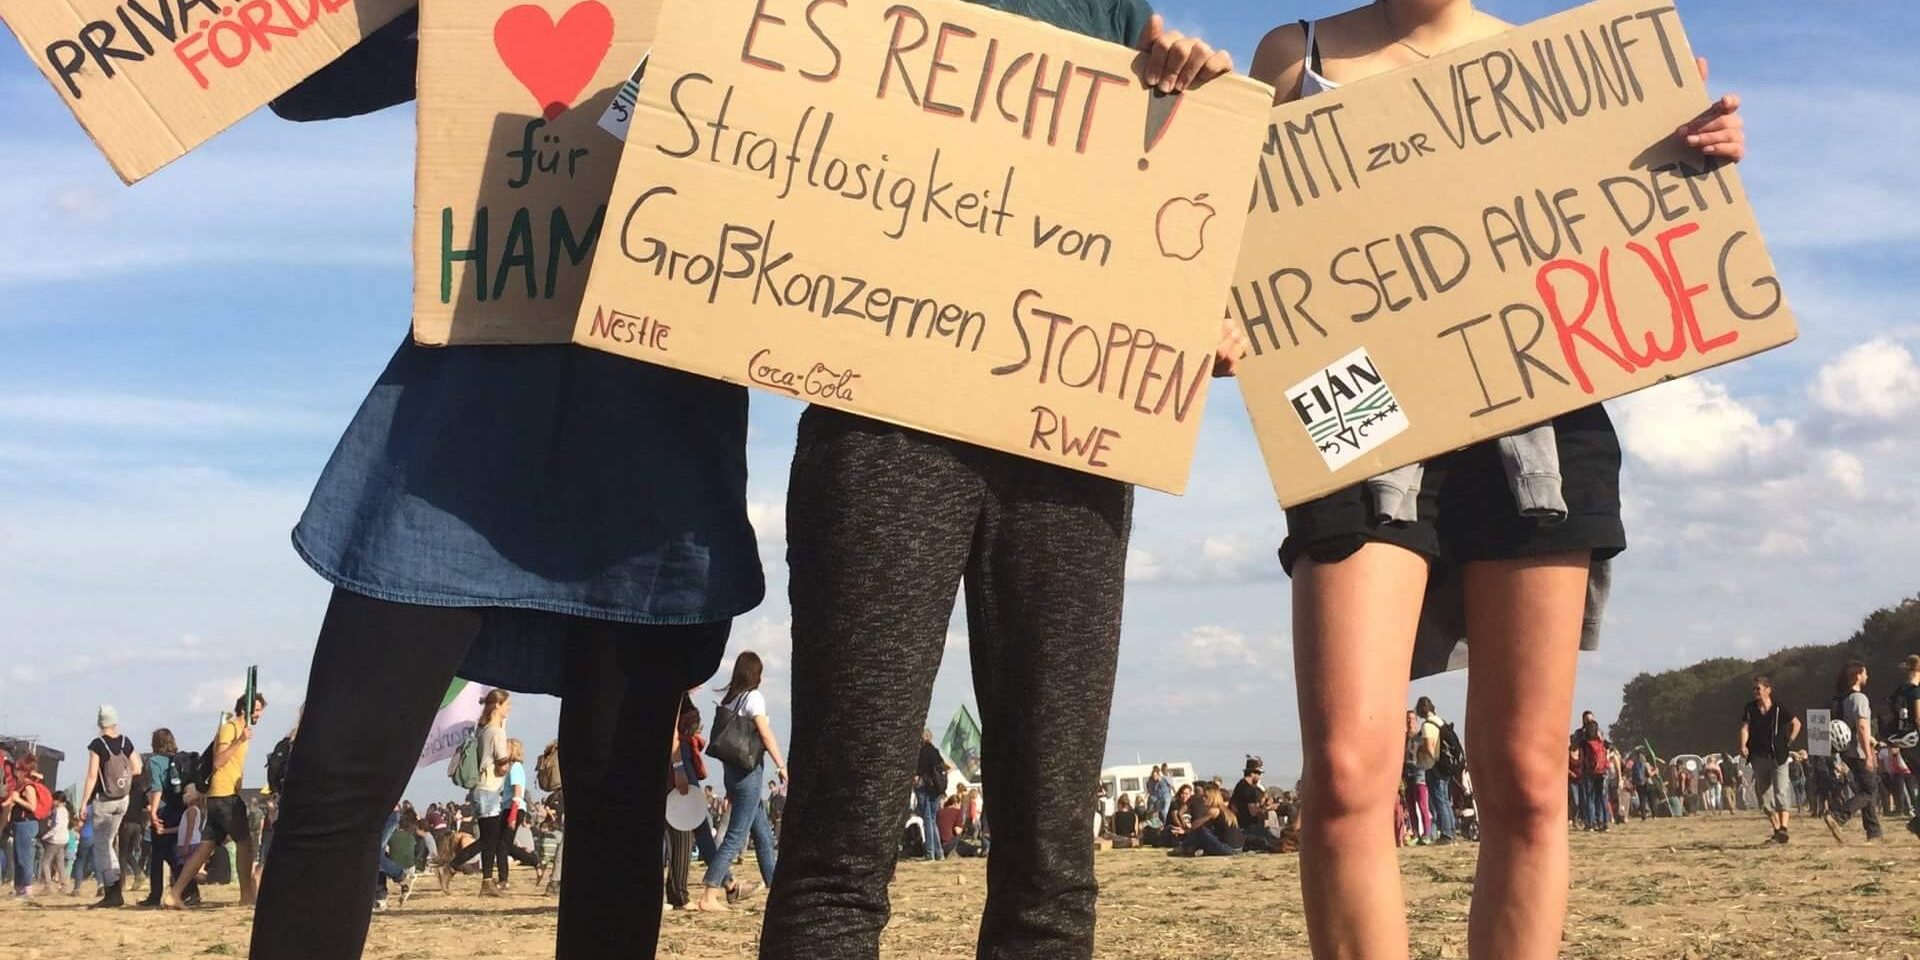 PRIVA
FÖRDE
für
HAM
ES REICHT!
Straflosigkeit von
Großkonzernen STOPPEN
Nestle
Coca-Cola
RWE
OMMT ZUR VERNUNFT
IHR SEID AUF DEM
IRRWEG
FIAN